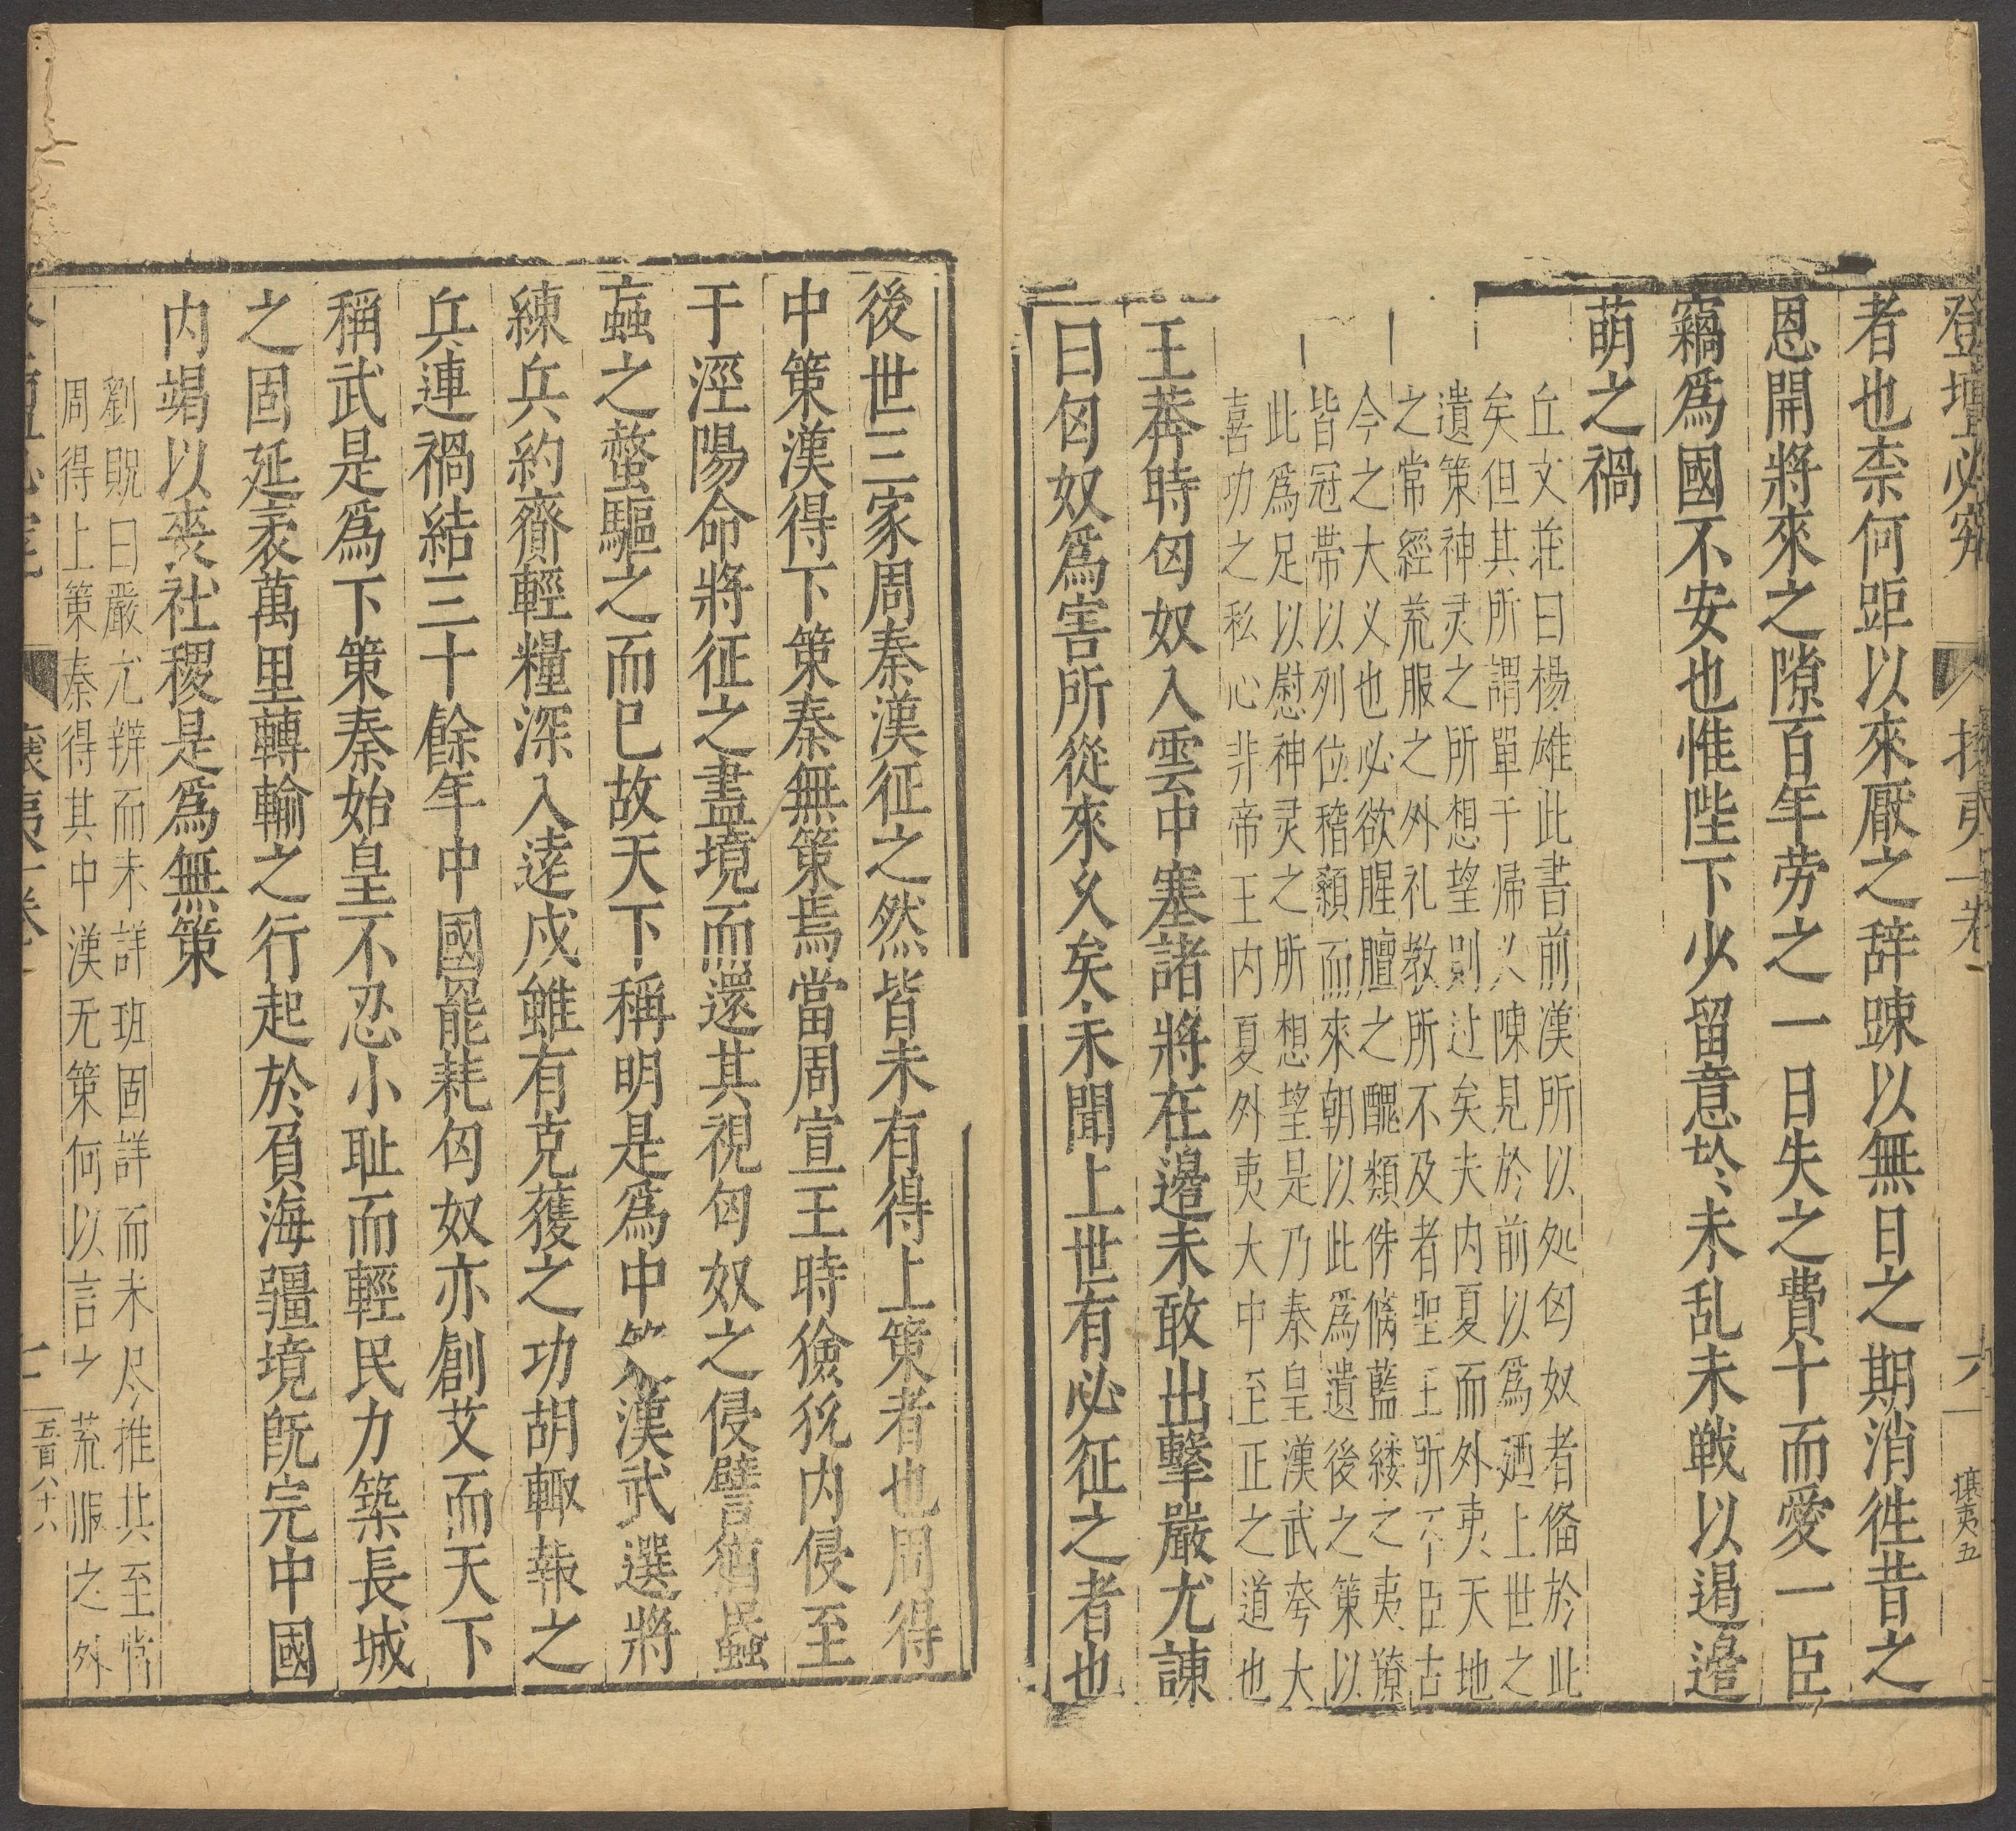 登壇必究 攘夷一卷 六 攘夷五
者也柰何距以來厭之辞踈以無日之期消徃昔之
恩開將來之隙百年劳之一日失之費十而愛一臣
竊爲國不安也惟陛下少留意於未乱未戦以遏邉
萌之禍
丘文莊曰楊雄此書前漢所以処匈奴者俻於此
矣但其所謂單于帰义陳見於前以爲廼上世之
遺策神灵之所想望則过矣夫内夏而外夷天地
之常經荒服之外礼教所不及者聖王所不臣古
今之大义也必欲腥膻之醜類侏㒧藍縷之夷獠
皆冠帯以列位稽顙而來朝以此爲遺後之策以
此爲足以慰神灵之所想望是乃秦皇漢武夸大
喜功之私心非帝王内夏外夷大中至正之道也
王莽時匈奴入雲中塞諸將在邉未敢出擊嚴尤諌
曰匈奴爲害所從來久矣未聞上世有必征之者也
後世三家周秦漢征之然皆未有得上策者也周得
中策漢得下策秦無策焉當周宣王時獫狁内侵至
于涇陽命將征之盡境而還其視匈奴之侵譬猶蟁
蝱之螫驅之而已故天下稱明是爲中策漢武選將
練兵約齎輕糧深入逺戍雖有克獲之功胡輙報之
兵連禍結三十餘年中國罷耗匈奴亦創艾而天下
稱武是爲下策秦始皇不忍小耻而輕民力築長城
之固延袤萬里轉輸之行起於負海疆境既完中國
内竭以丧社稷是爲無策
劉貺曰嚴尤辨而未詳班固詳而未尽推其至當
周得上策秦得其中漢无策何以言之荒服之外
攘夷一卷 七 五百八十六